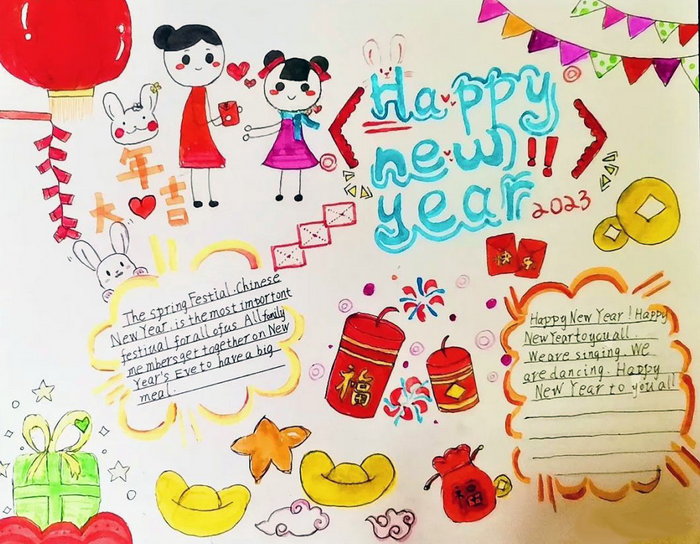 Happy
new
year
!!
2023
年
大
吉
快乐
The spring Festial. Chinese
New Year. is the most important
festival for all of us All family
members get together on New
Year's Eve to have a big
meal.
福
Happy New Year! Happy
New Year to you all.
We are singing. We
are dancing. Happy
New Year to you all
福